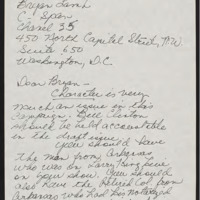 Bryan Lamb
C-Span
Chanel 35
450 North Capitol Street, N.W.
Suite 650
Washington, D.C.
Dear Bryan-
Character is very
much an issue in this
campaign. Bill Clinton
should be held accountable
in the draft issue.
You should have
the man from Arkansas
who was on Larry King live
on your show. You should
also have the retired Col. from
Arkansas who had